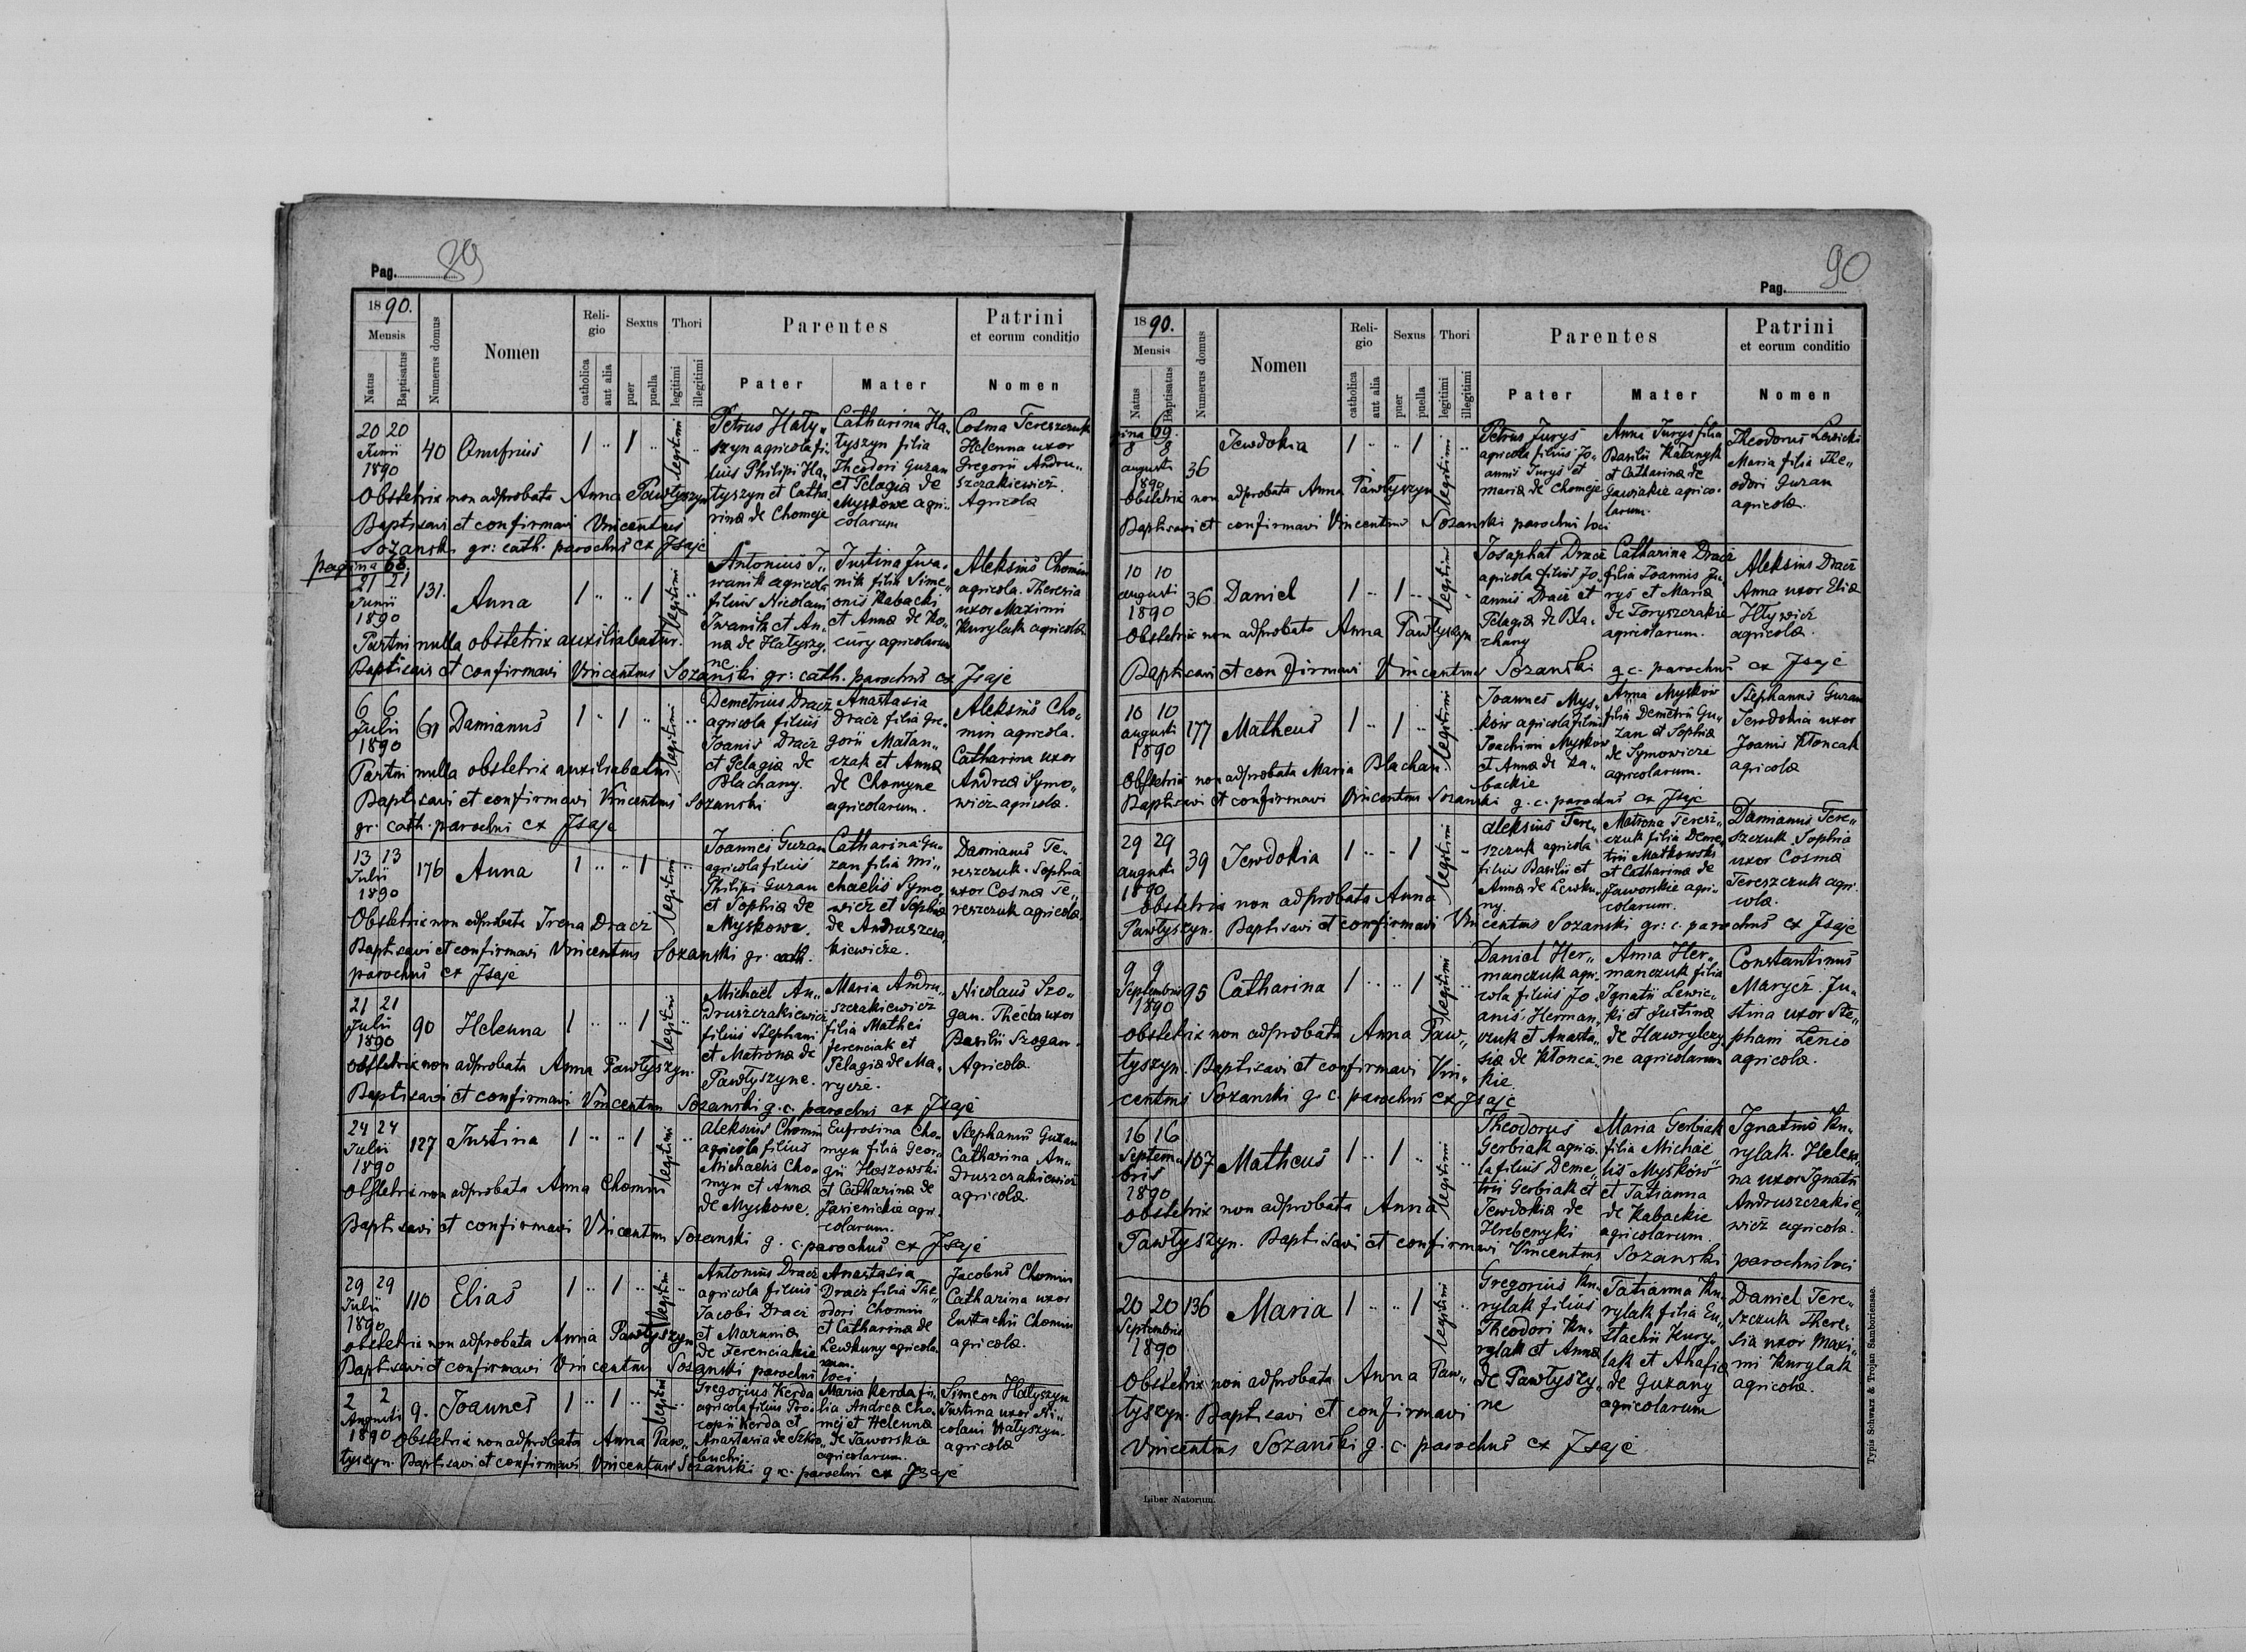 Pag. 89
1890.
Mensis
Natus
Baptisatus
Numerus domus
Nomen
Reli-
gio
catholica
aut alia
Sexus
puer
puella
Thori
legitimi
illegitimi
Parentes
Pater
Mater
Patrini
et eorum conditio
Nomen
20 20
Junii
1890
40
Onufrius
1 .. 1 ..
legitimi
Petrus Haty„
szyn agricola fi„
lius Philipi Ha„
tyszyn et Catha„
rina de Chomeje
Catharina Ha„
tyszyn filia
Theodori Guzan
et Pelagia de
Myskowe agri„
colarum
Cosma Tereszczuk
Helenna uxor
Gregorii Andru„
szczakiewicz.
Agricola
Obstetrix non adprobata Anna Pawłyszyn
Baptisavi et confirmavi Vincentius
Sozanski gr: cath. parochus ex Jsaje
pagina 68.
21 21
Junii
1890
131.
Anna
1 .. .. 1
legitimi
Antonius J„
wanik agricola
filius Nicolaui
Iwanik et An„
na de Hatyszy„
ne.
Justina Jwa„
nik filia Sime„
onis Kabacki
et Anna de Ko„
cury agricolarum
Aleksius Chomin
agricola. Theresia
uxor Maximi
Kurylak agricola
Partui nulla obstetrix auxiliabatur.
Baptisavi et confirmavi Vincentius Sozanski gr: cath. parochus ex Jsaje
6 6
Julii
1890
61
Damianus
1 .. 1 ..
legitimi
Demetrius Dracz
agricola filius
Joanis Dracz
et Pelagia de
Blachany.
Anastasia
Dracz filia Gre„
gorii Matan„
czak et Anna
de Chomyne
agricolarum.
Aleksius Cho„
min agricola.
Catharina uxor
Andrea Symo„
wicz agricola.
Partui nulla obstetrix auxiliabatur
Baptisavi et confirmavi Vincentius Sozanski
gr. cath. parochus ex Jsaje
13 13
Julii
1890
176
Anna
1 .. .. 1
legitimi
Joannes Guzan
agricola filius
Philipi Guzan
et Sophia de
Myskowe.
Catharina Gu„
zan filia Mi„
chaelis Symo„
wicz et Sophia
de Andruszcza„
kiewicze.
Damianus Te„
reszczuk. Sophia
uxor Cosma Te„
reszczuk agricola
Obstetrix non adprobata Irena Dracz
Baptisavi et confirmavi Vincentius Sozanski gr. cath.
parochus ex Jsaje
21 21
Julii
1890
90
Helenna
1 .. .. 1
legitimi
Michael An„
druszczakiewicz
filius Stephani
et Matrona de
Pawłyszyne.
Maria Andru„
szczakiewicz
filia Mathei
Ferenciak et
Pelagia de Ma„
rycze.
Nicolaus Szo„
gan. Thecla uxor
Basilii Szogan.
Agricola
Obstetrix non adprobata Anna Pawłyszyn.
Baptisavi et confirmavi Vincentius Sozanski g. c. parochus ex Jsaje
24 24
Julii
1890
127
Justina
1 .. .. 1
legitimi
Aleksius Chomin
agricola filius
Michaelis Cho„
myn et Anna
de Myskowe.
Eufrosina Cho„
myn filia Geor„
gii Hoszowski
et Catharina de
Jasienickie agri„
colarum.
Stephanus Guzan
Catharina An„
druszczakiewicz
agricola
Obstetrix non adprobata Anna Chomin
Baptisavi et confirmavi Vincentius Sozanski g. c. parochus ex Jsaje
29 29
Julii
1890
110
Elias
1 .. 1 ..
legitimi
Antonius Dracz
agricola filius
Jacobi Dracz
et Marunia
de Ferenciakie
Anastasia
Dracz filia The„
odori Chomin
et Catharina de
Lewkuny agricola„
rum.
Jacobus Chomin
Catharina uxor
Eustachii Chomin
agricola.
obstetrix non adprobata Anna Pawłyszyn
Baptisavi et confirmavi Vincentius Sozanski parochus loci
2 2
Augusti
1890
9.
Joannes
1 .. 1 ..
legitimi
Gregorius Kerda
agricola filius Pro„
copii Kerda et
Anastasia de Szku„
Maria Kerda fi„
lia Andrea Cho„
mej et Helenna
de Jaworskie
agricolarum.
Simeon Hatyszyn
Justina uxor Ni„
colaui Hatyszyn.
agricola
Obstetrix non adprobata Anna Paw„
tyszyn. Baptisavi et confirmavi Vincentius Sozanski g. c. parochus ex Jsaje
Pag. 90
1890.
Mensis
Natus
Baptisatus
Numerus domus
Nomen
Reli-
gio
catholica
aut alia
Sexus
puer
puella
Thori
legitimi
illegitimi
Parentes
Pater
Mater
Patrini
et eorum conditio
Nomen
ina 69.
8 8
augusti
1890
36
Jewdokia
1 .. .. 1
legitimi
Petrus Jurys
agricola filius Jo„
annis Jurys et
maria de Chomeje
Anna Jurys filia
Basilii Katanyk
et Catharina de
Gawiakie agrico„
larum.
Theodorus Lewicki
Maria filia The„
odori Guzan
agricola.
Obstetrix non adprobata Anna Pawłyszyn
Baptisavi et confirmavi Vincentius Sozanski parochus loci
10 10
augusti
1890
36
Daniel
1 .. 1 ..
legitimi
Josaphat Dracz
agricola filius Jo„
annis Dracz et
Pelagia de Bla„
chany
Catharina Dracz
filia Joannis Ju„
rys et Maria
de Toryszczakie
agricolarum.
Aleksius Dracz
Anna uxor Elia
Hlywicz
agricola.
Obstetrix non adprobata Anna Pawłyszyn
Baptisavi et confirmavi Vincentius Sozanski g. c. parochus ex Jsaje
10 10
augusti
1890
177
Matheus
1 .. 1 ..
legitimi
Joannes Mys„
kow agricola filius
Joachimi Myskow
et Anna de Ka„
backie
Anna Myskow
filia Demetrii Gu„
zan et Sophia
de Symowicze
agricolarum.
Stephanus Guzan
Jewdokia uxor
Joanis Kłoncak
agricola
Obstetrix non adprobata Maria Blachan
Baptisavi et confirmavi Vincentius Sozanski g. c. parochus ex Jsaje
29 29
augusti
1890
39
Jewdokia
1 .. .. 1
legitimi
Aleksius Tere„
szczuk agricola
filius Basilii et
Anna de Lewku„
ny.
Matrona Teresz„
czuk filia Deme„
trii Matkowski
et Catharina de
Jaworskie agri„
colarum.
Damianus Tere„
szczuk Sophia
uxor Cosma
Tereszczuk agri„
cola.
obstetrix non adprobata Anna
Pawłyszyn. Baptisavi et confirmavi Vincentius Sozanski gr: c. parochus ex Jsaje
9 9
Septembris
1890
95
Catharina
1 .. .. 1
legitimi
Daniel Her„
manczuk agri„
cola filius Jo„
anis Herman„
czuk et Anasta„
sia de Kłonca„
kie.
Anna Her„
manczuk filia
Ignatii Lewic„
ki et Justina
de Hawrylczy„
ne agricolarum
Constantinus
Marycz. Ju„
stina uxor Ste„
phani Lenio
agricola.
obstetrix non adprobata Anna Paw„
tyszyn. Baptisavi et confirmavi Vin„
centius Sozanski g. c. parochus ex Jsaje
16 16
Septem„
bris
1890
107
Matheus
1 .. 1 ..
legitimi
Theodorus
Gerbiak agrico„
la filius Deme„
trii Gerbiak et
Jewdokia de
Hrebenyki
Maria Gerbiak
filia Michae„
lis Myskow
et Tatianna
de Kabackie
agricolarum.
Ignatius Ku„
rylak. Helen„
na uxor Ignatii
Andruszczakie„
wicz agricola.
obstetrix non adprobata Anna
Pawłyszyn. Baptisavi et confirmavi Vincentius Sozanski parochus loci
20 20
Septembris
1890
136
Maria
1 .. .. 1
legitimi
Gregorius Ku„
rylak filius
Theodori Ku„
rylak et Anna
de Pawłyszy„
ne
Tatianna Ku„
rylak filia Eu„
stachii Kury„
lak et Ahafia
de Guzany
agricolarum
Daniel Tere„
szczuk There„
sia uxor Maxi„
mi Kurylak
agricola.
Obstetrix non adprobata Anna Paw„
tyszyn. Baptisavi et confirmavi
Vincentius Sozanski g. c. parochus ex Jsaje
Liber Natorum.
Typis Schwarz & Trojan Samboriensae.